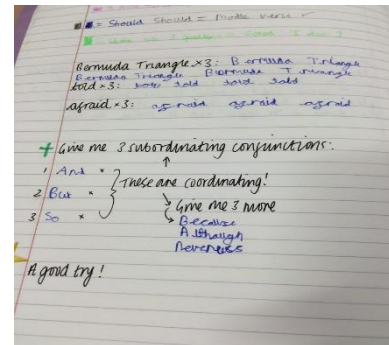 = Should Should = Modal verb ✓
Bermuda Triangle ×3: Bermuda Triangle
Bermuda Triangle Bermuda Triangle
told ×3: told told told
afraid ×3: afraid afraid afraid
+ Give me 3 subordinating conjunctions:
1 And ×
2 But ×
3 So ×
These are coordinating!
Give me 3 more
Because
Although
A good try!